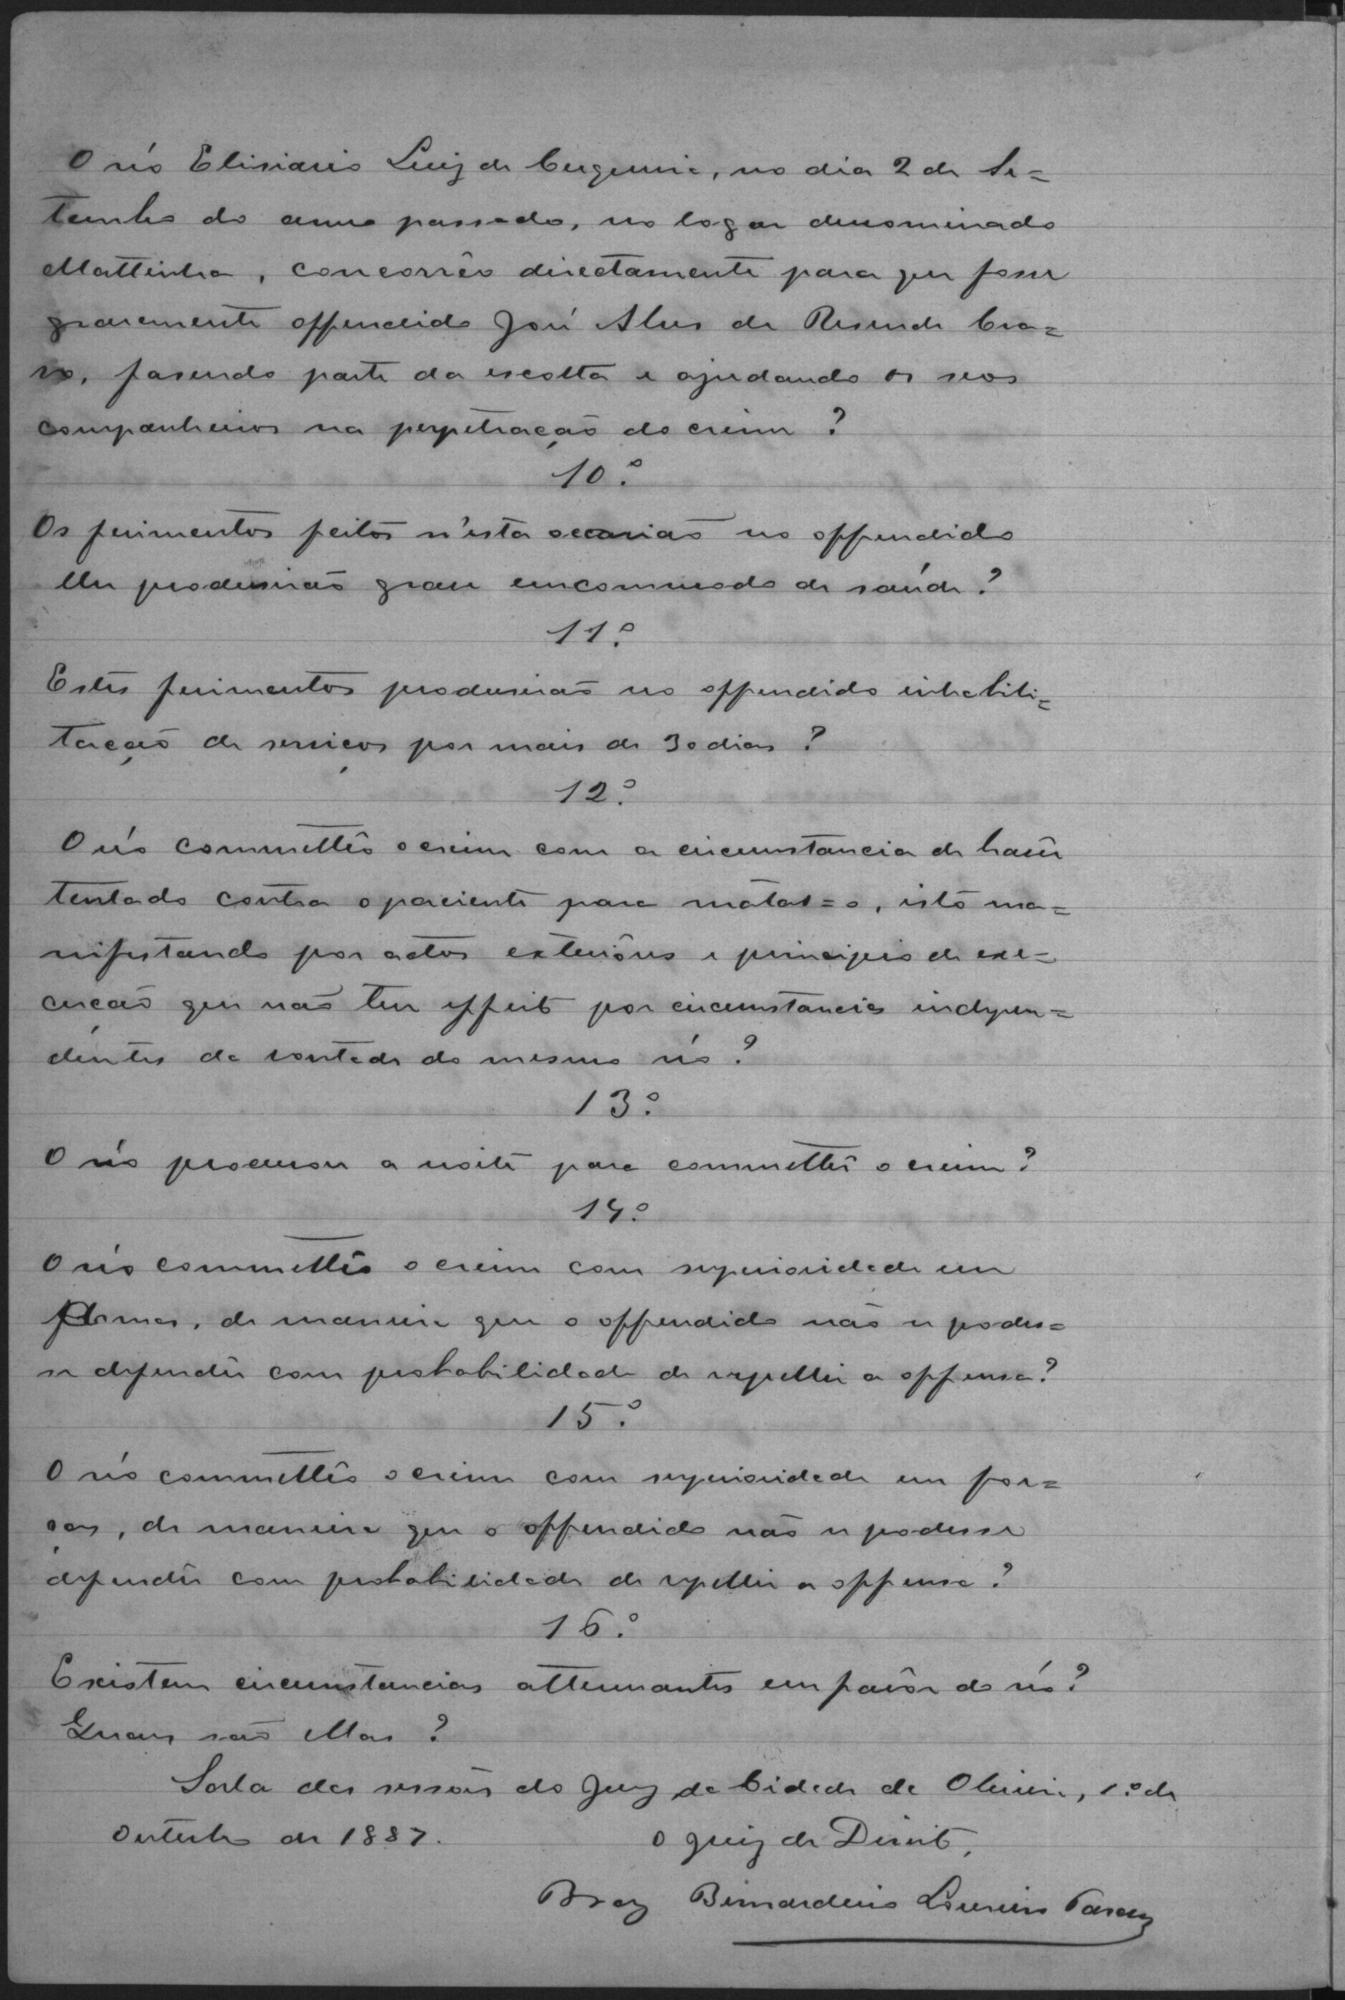 O réo Elisiario Luiz de Cerqueira, no dia 2 de Se=
tembro do anno passado, no logar denominado
Mattinha, concorrêo directamente para que fosse
gravemente offendido José Alves de Resende Cra=
vo, fasendo parte da escolta e ajudando os seos
companheiros na perpetração do crime?
10.º
Os ferimentos feitos n'esta occasião no offendido
lhe produsirão grave emcommodo de saúde?
11.º
Estes ferimentos produsirão no offendido inhabili=
tação de serviços por mais de 30 dias?
12.º
O réo commettêo o crime com a circumstancia de havêr
tentado contra o paciente para matal=o, isto ma=
nifestando por actos exteriôres e principio de exe=
cução que não teve effeito por circumstancias indepen=
dentes da vontade do mesmo réo?
13.º
O réo procurou a noite para commettêr o crime?
14.º
O réo commettêo o crime com superioridade em
Armas, de maneira que o offendido não se podes=
se defendêr com probabilidade de repellir a offensa?
15.º
O réo commettêo o crime com superioridade em for=
ças, de maneira que o offendido não se podesse
defendêr com probabilidade de repellir a offensa?
16.º
Existem circumstancias attenuantes em favôr do réo?
Quaes são ellas?
Sala das sessões do Jury da Cidade de Oliveira, 1.º de
Outubro de 1887. O Juiz de Direito,
Braz Bernardino Loureiro Tavares